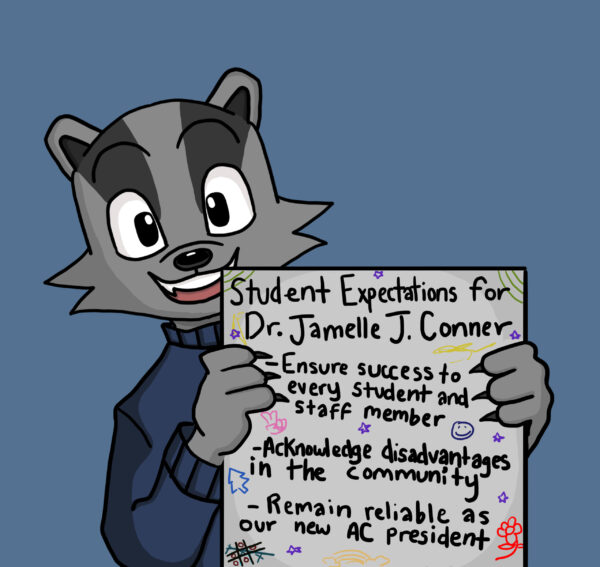 Student Expectations for
Dr. Jamelle J. Conner
-Ensure success to
every student and
staff member
-Acknowledge disadvantages
in the community
- Remain reliable as
our new AC president